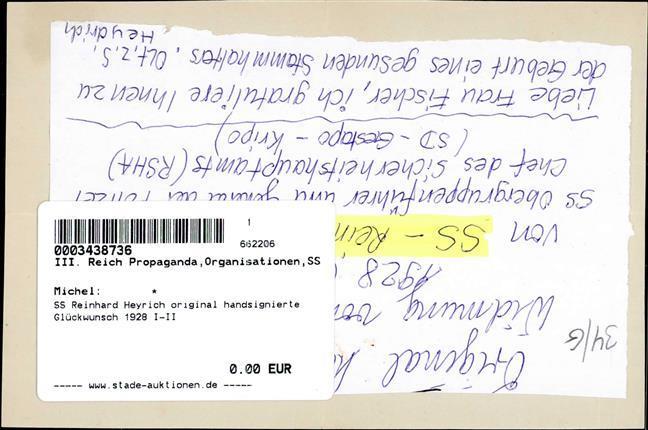 34/G
Original
Widmung von
1928
von SS - Rein
SS Obergruppenführer und General der Polizei
Chef des Sicherheitshauptamts (RSHA)
(SD - Gestapo - Kripo)
Liebe Frau Fischer, ich gratuliere Ihnen zu
der Geburt eines gesunden Stammhalters, Olt,z,S,
Heydrich
1
0003438736 662206
III. Reich Propaganda,Organisationen,SS
Michel: *
SS Reinhard Heyrich original handsignierte
Glückwunsch 1928 I-II
0.00 EUR
----- www.stade-auktionen.de -----